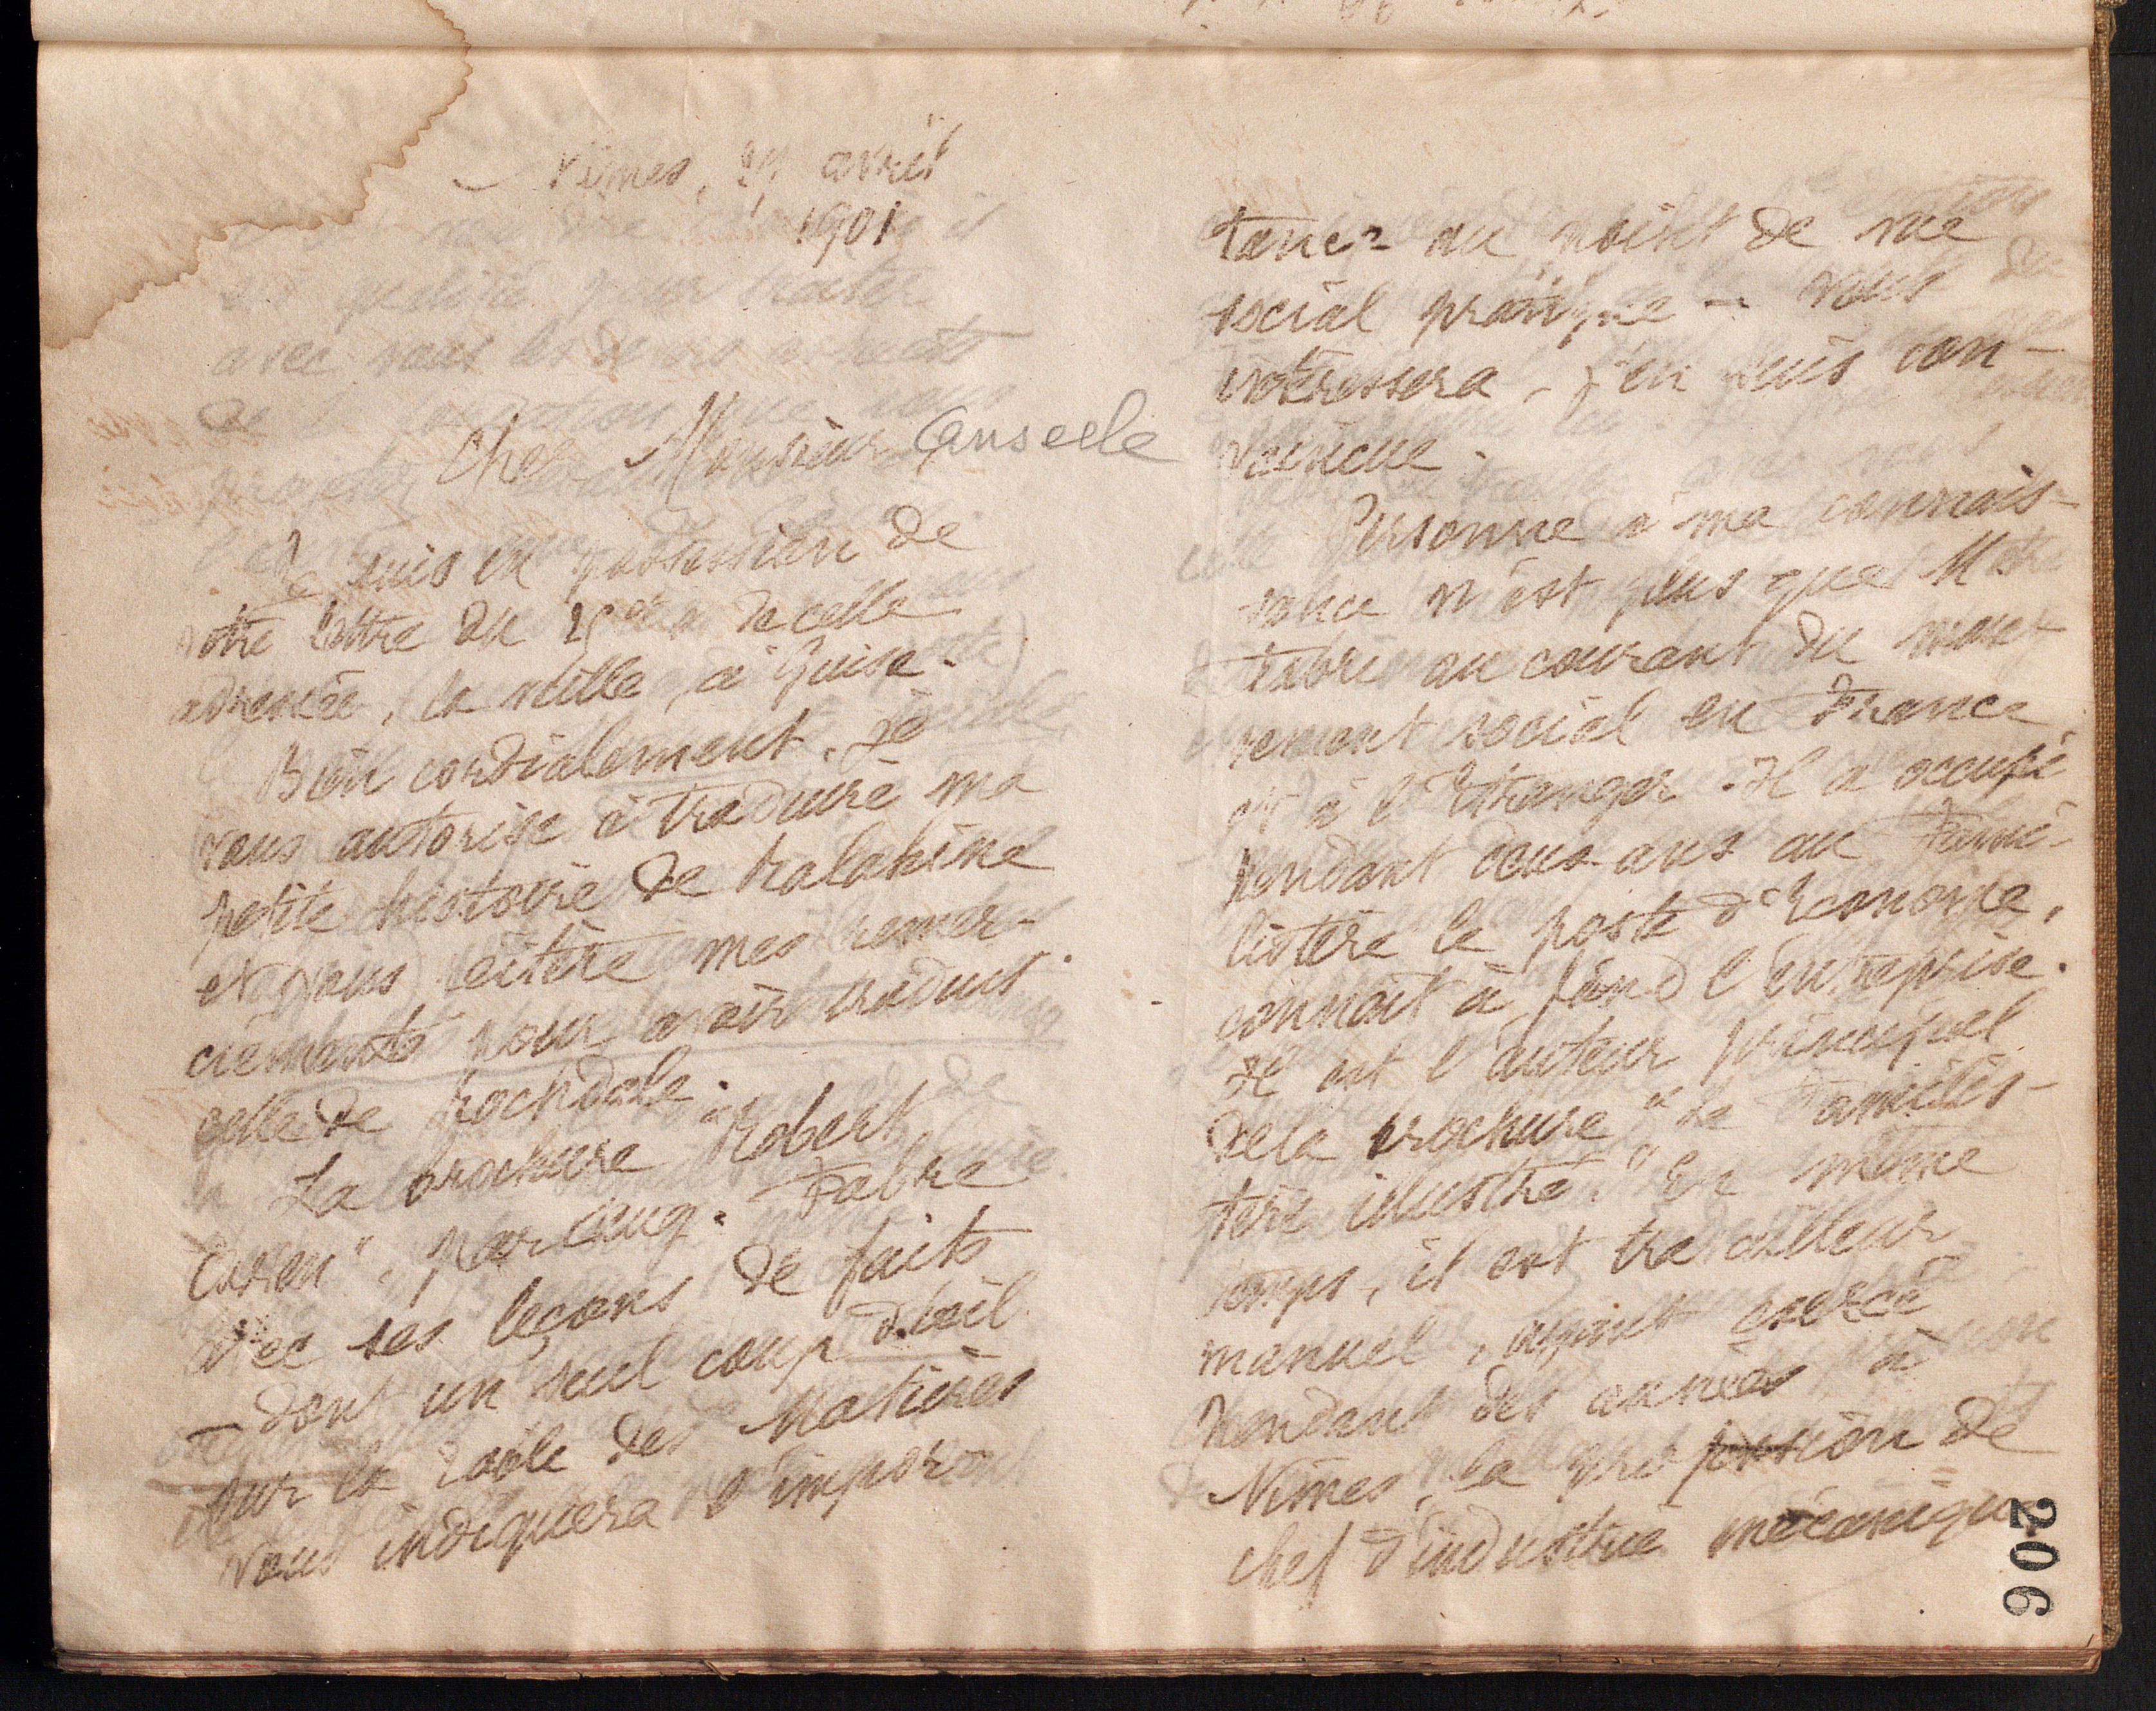 Nîmes, 27 avril
1901
Cher Monsieur Anseele
Je suis en possession de
votre lettre du 25 et de celle
adressée, la veille, à Guise.
Bien cordialement, je
vous autorise à traduire ma
petite histoire de Ralahine
et vous réitère mes remer-
ciements pour avoir traduit
celle de Rochdale.
La brochure "Robert
Owen", par Aug. Fabre
avec ses leçons de faits
— dont un seul coup d'œil
sur la Table des Matières
vous indiquera l'impor
tance au point de vue
social pratique — vous
intéressera, j'en suis con-
vaincue.
Personne à ma connais-
sance n'est plus que M
Fabre au courant du mou
vement social en France
et à l'Etranger. Il a occupé
pendant deux ans au Fami-
listère le poste d'Econome,
connaît à fond l'entreprise.
Il est l'auteur principal
de la brochure "Le Familis-
tère illustré". En même
temps, il est travailleur
manuel, ayant exercé
pendant des années à
Nîmes, la profession de
chef d'industrie mécanique.
206